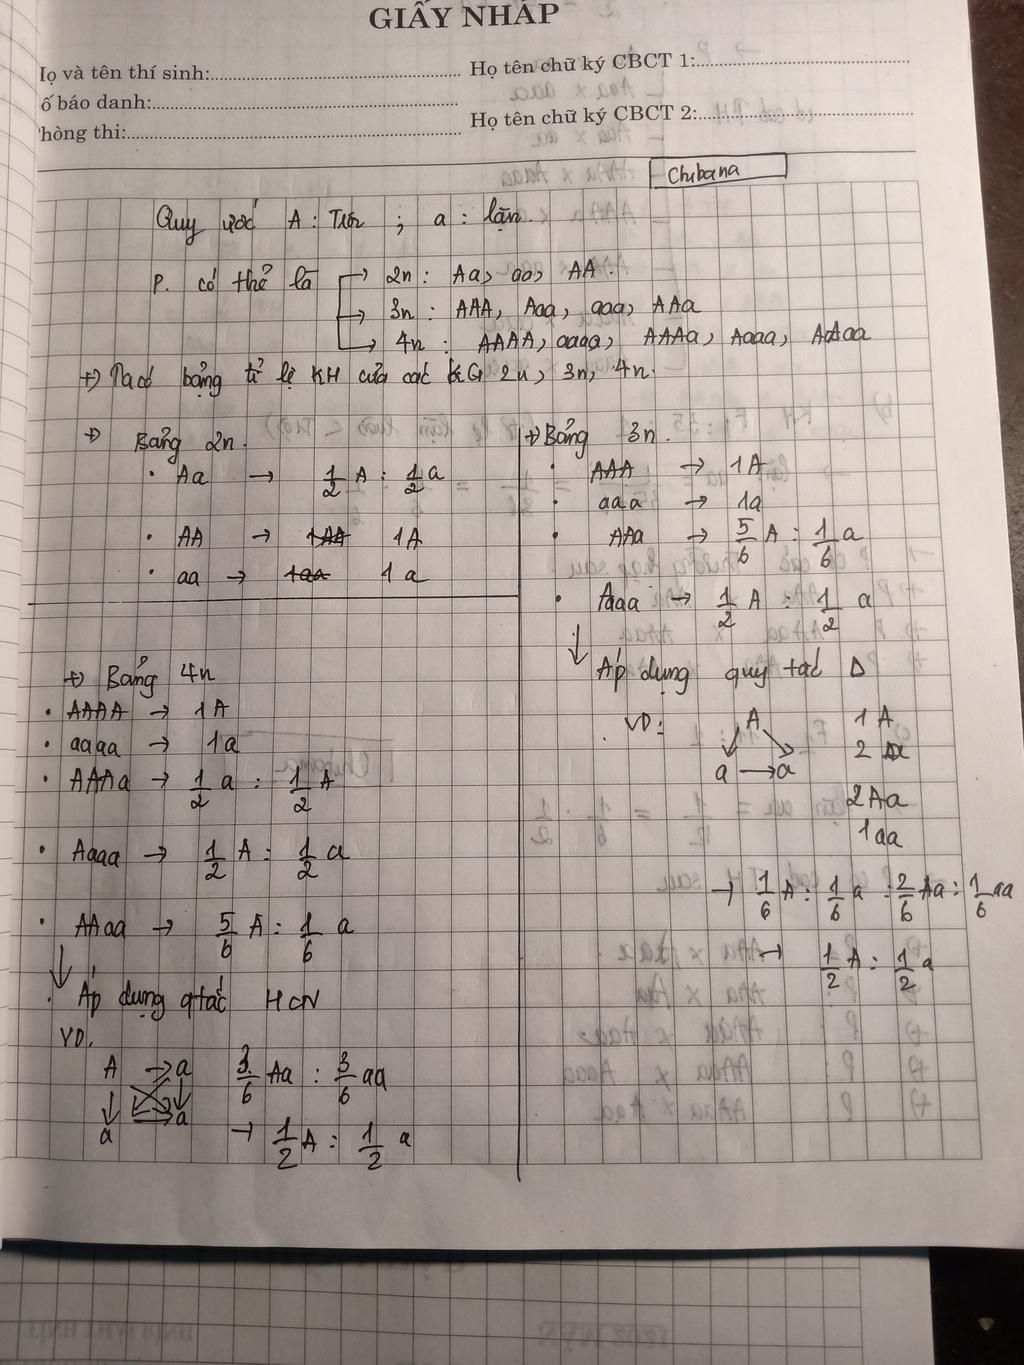 GIẤY NHÁP
Họ tên chữ ký CBCT 1:
Họ và tên thí sinh:
ố báo danh:
Họ tên chữ ký CBCT 2:
hòng thi:
Chibana
Quy ước A: Trội ; a: lặn.
P. có thể là → 2n: Aa, aa, AA.
→ 3n: AAA, Aaa, aaa, AAa
→ 4n: AAAA, aaaa, AAAa, Aaaa, AAaa
+) Ta có bảng tỉ lệ KH của các KG 2n, 3n, 4n.
+) Bảng 2n.
• Aa → 1/2 A : 1/2 a
• AA → 1AA 1A
• aa → 1aa 1a
+) Bảng 3n.
• AAA → 1A
• aaa → 1a
• AAa → 5/6 A : 1/6 a
• Aaa → 1/2 A : 1/2 a
↓ Áp dụng quy tắc Δ
VD: A
a → a
1 A
2 a
2Aa
1aa
→ 1/6 A : 1/6 a : 2/6 Aa : 1/6 aa
→ 1/2 A : 1/2 a
+) Bảng 4n
• AAAA → 1A
• aaaa → 1a
• AAAa → 1/2 a : 1/2 A
• Aaaa → 1/2 A : 1/2 a
• AAaa → 5/6 A : 1/6 a
↓
• Áp dụng qtắc HCN
VD.
A → a 3/6 Aa : 3/6 aa
a → a → 1/2 A : 1/2 a